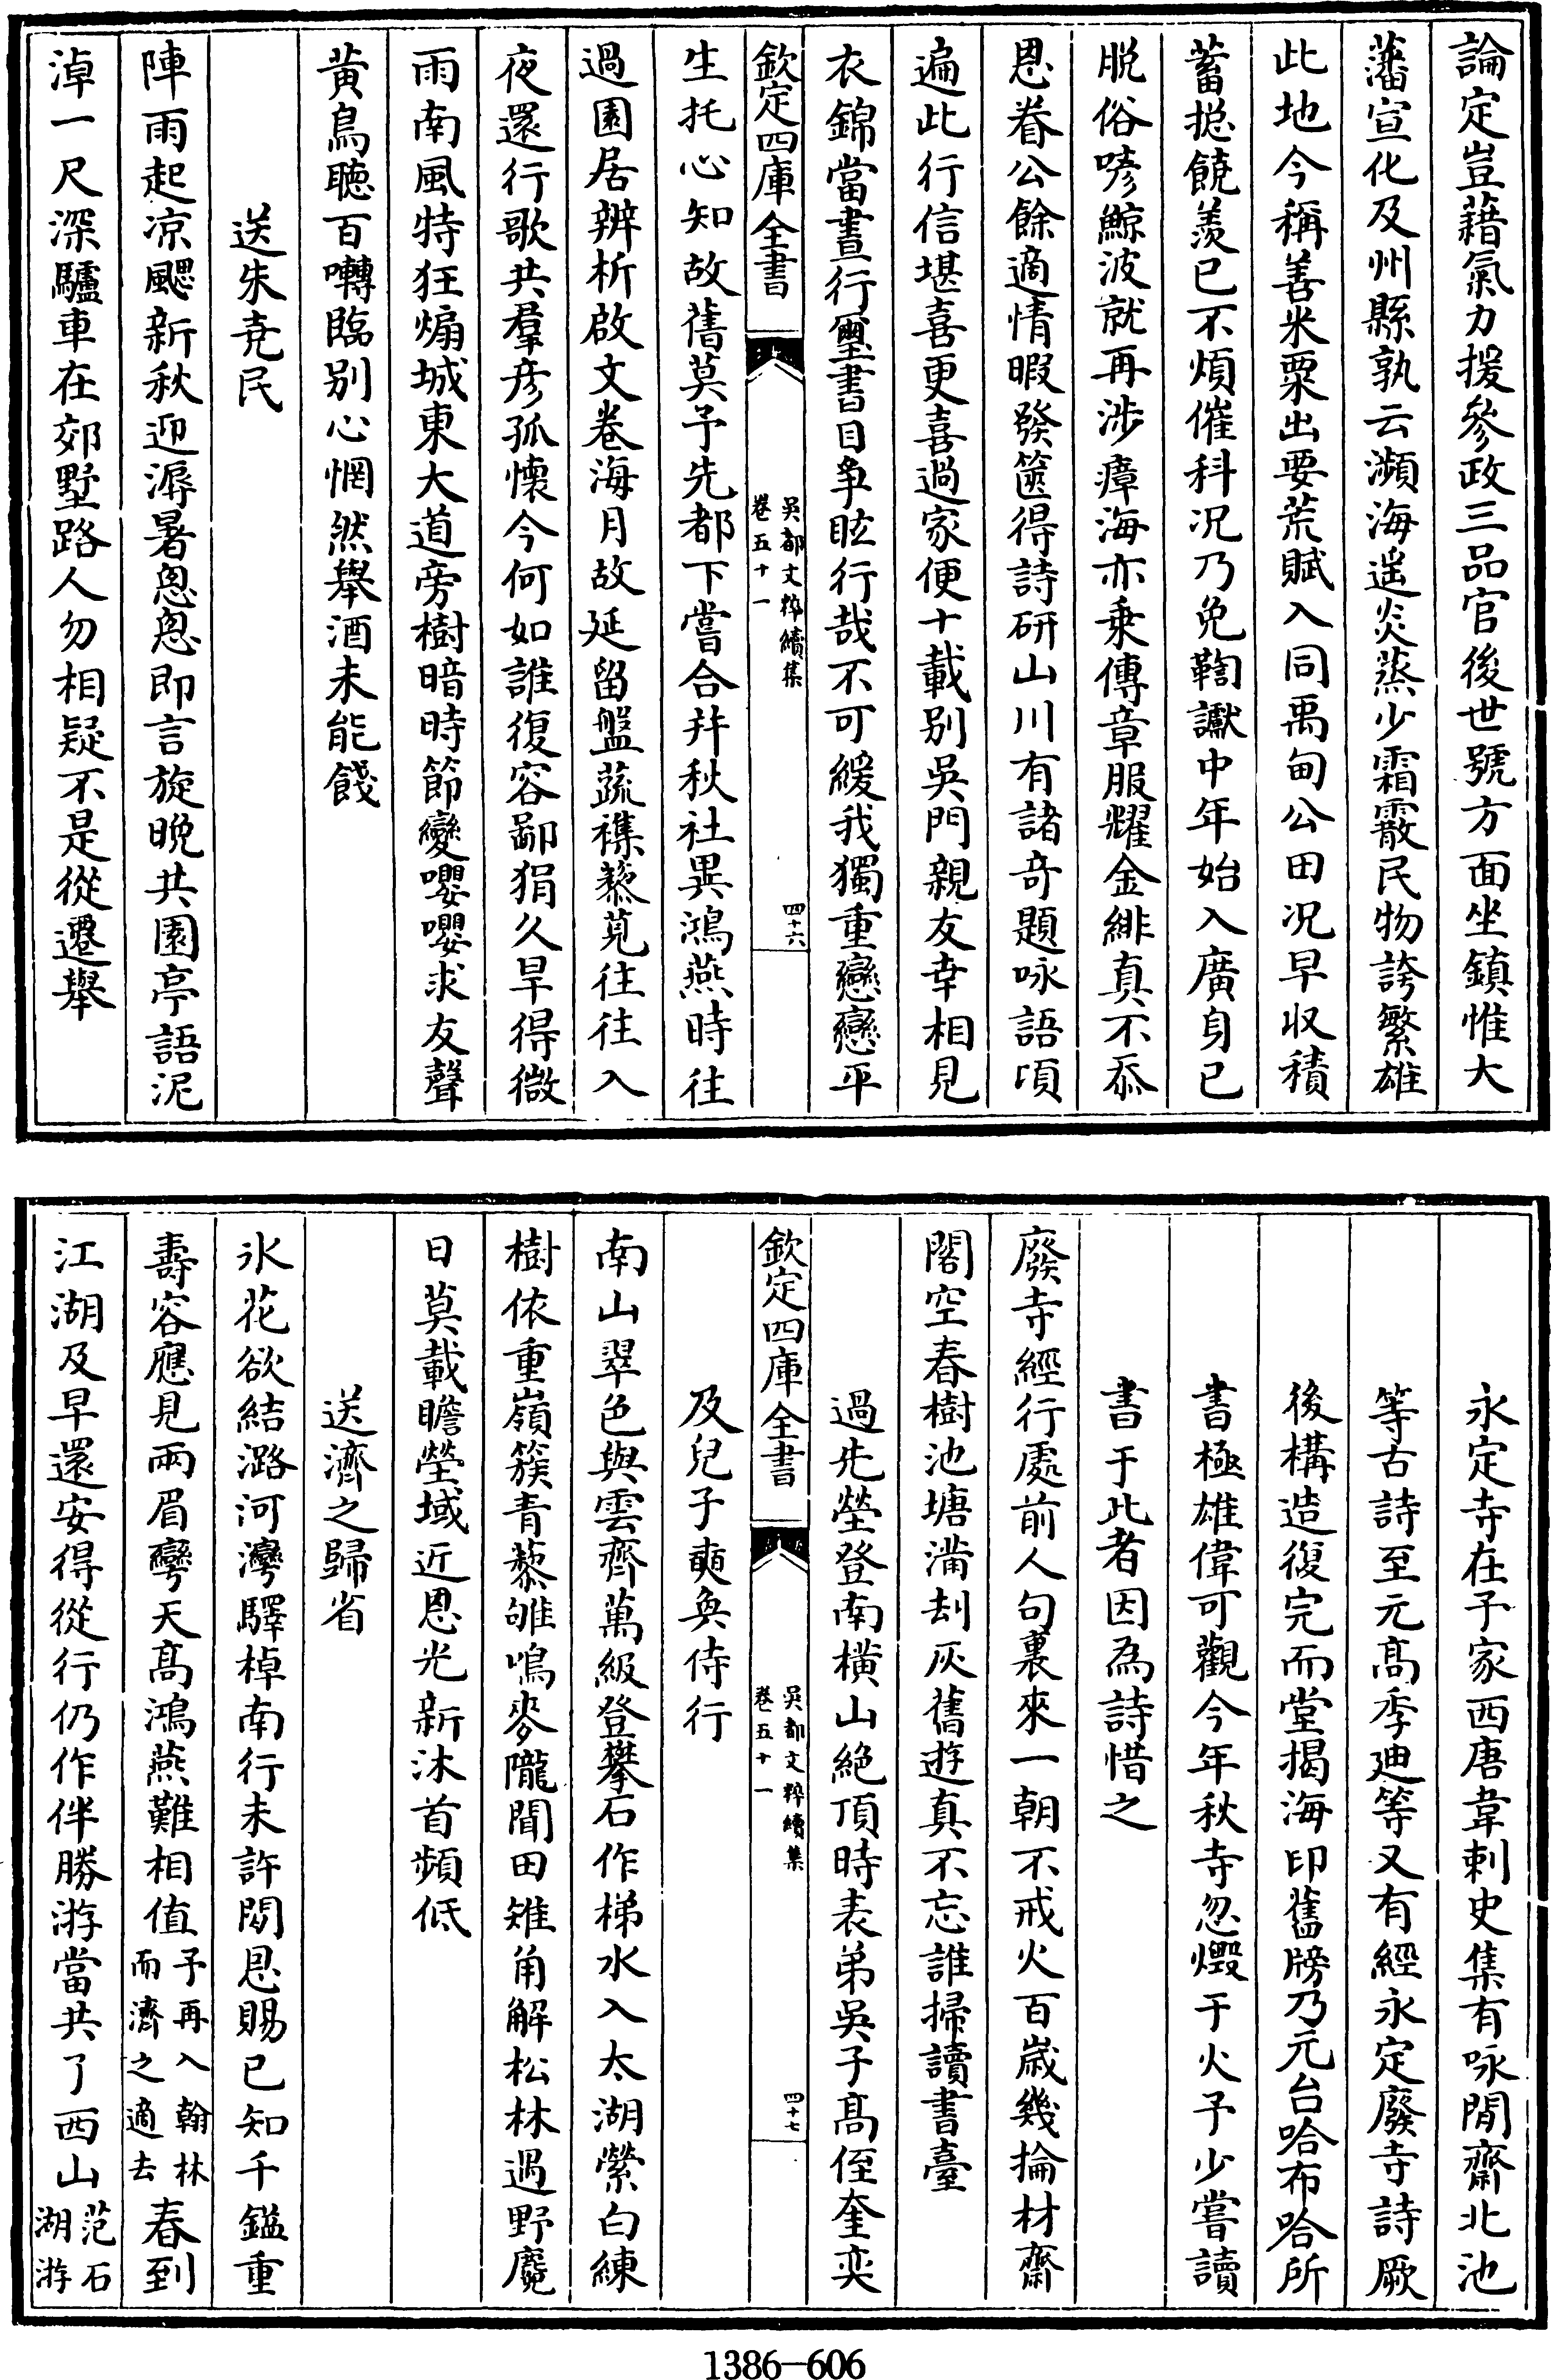 論定豈藉氣力援參政三品官後世號方面坐鎮惟大
藩宣化及州縣孰云瀕海遥炎蒸少霜霰民物誇繁雄
此地今稱善米粟出要荒賦入同禹甸公田况早収積
蓄摠饒羨已不煩催科况乃免鞫讞中年始入廣身已
脱俗嘐鯨波就再涉瘴海亦乗傳章服耀金緋真不忝
恩眷公餘適情暇發篋得詩研山川有諸奇題咏語頃
遍此行信堪喜更喜過家便十載别吳門親友幸相見
衣錦當晝行璽書目争眩行哉不可緩我獨重戀戀平
欽定四庫全書
吳都文粹續集
卷五十一
四十六
生托心知故舊莫予先都下嘗合并秋社異鴻燕時往
過園居辨析啟文卷海月故延留盤蔬襍藜莧往往入
夜還行歌共羣彦孤懷今何如誰復容鄙狷久旱得微
雨南風特狂煽城東大道旁樹暗時節變嚶嚶求友聲
黄鳥聴百囀臨别心惘然舉酒未能餞
送朱堯民
陣雨起凉颸新秋迎溽暑怱怱即言旋晚共園亭語泥
淖一尺深驢車在郊墅路人勿相疑不是從遷舉
永定寺在予家西唐韋刺史集有咏閒齋北池
等古詩至元髙季廸等又有經永定廢寺詩厥
後構造復完而堂揭海印舊牓乃元台哈布哈所
書極雄偉可觀今年秋寺忽燬于火予少嘗讀
書于此者因為詩惜之
廢寺經行處前人句裏來一朝不戒火百歳幾掄材齋
閣空春樹池塘滿刦灰舊遊真不忘誰掃讀書臺
過先塋登南横山絶頂時表弟吳子髙侄奎奕
欽定四庫全書
吳都文粹續集
卷五十一
四十七
及兒子奭奐侍行
南山翠色與雲齊萬級登攀石作梯水入太湖縈白練
樹依重嶺簇青藜雊鳴麥隴聞田雉角解松林過野麑
日莫載瞻塋域近恩光新沐首頻低
送濟之歸省
氷花欲結潞河灣驛棹南行未許閒恩賜已知千鎰重
壽容應見兩眉彎天髙鴻燕難相值予再入翰林而濟之適去春到
江湖及早還安得從行仍作伴勝游當共了西山范石湖游
1386—606